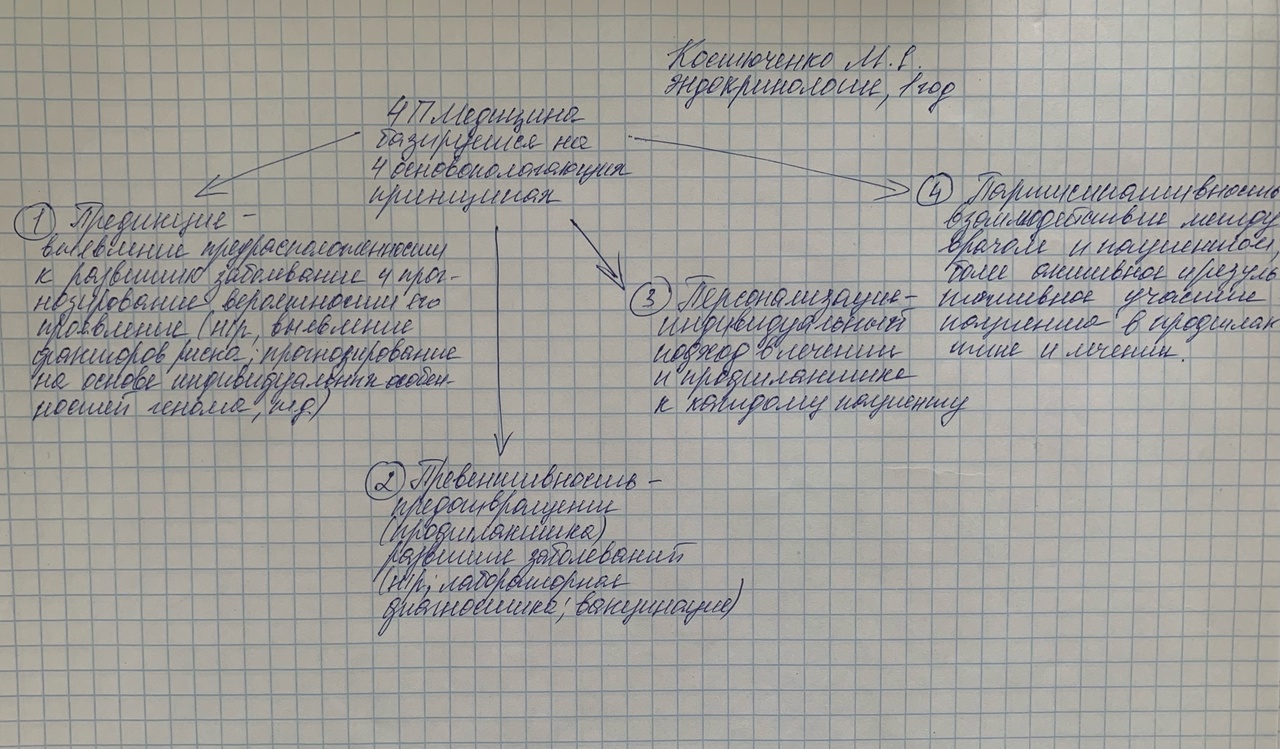 Костюченко М. С.
Эндокринология, 1 год
4П Медицина
базируется на
4 основополагающих
принципах
① Предикция -
выявление предрасположенности
к развитию заболевания и прог-
нозирование вероятности его
проявление (н/р, выявление
факторов риска; прогнозирование
на основе индивидуальных особен-
ностей генома, т.д.)
② Превентивность -
предотвращении
(профилактика)
развитие заболеваний
(н/р, лабораторная
диагностика; вакцинация)
③ Персонализация -
индивидуальный
подход в лечении
и профилактике
к каждому пациенту
④ Партисипативность
взаимодействие между
врачом и пациентом,
более активное и резуль
тативное участие
пациента в профилак
тике и лечении.